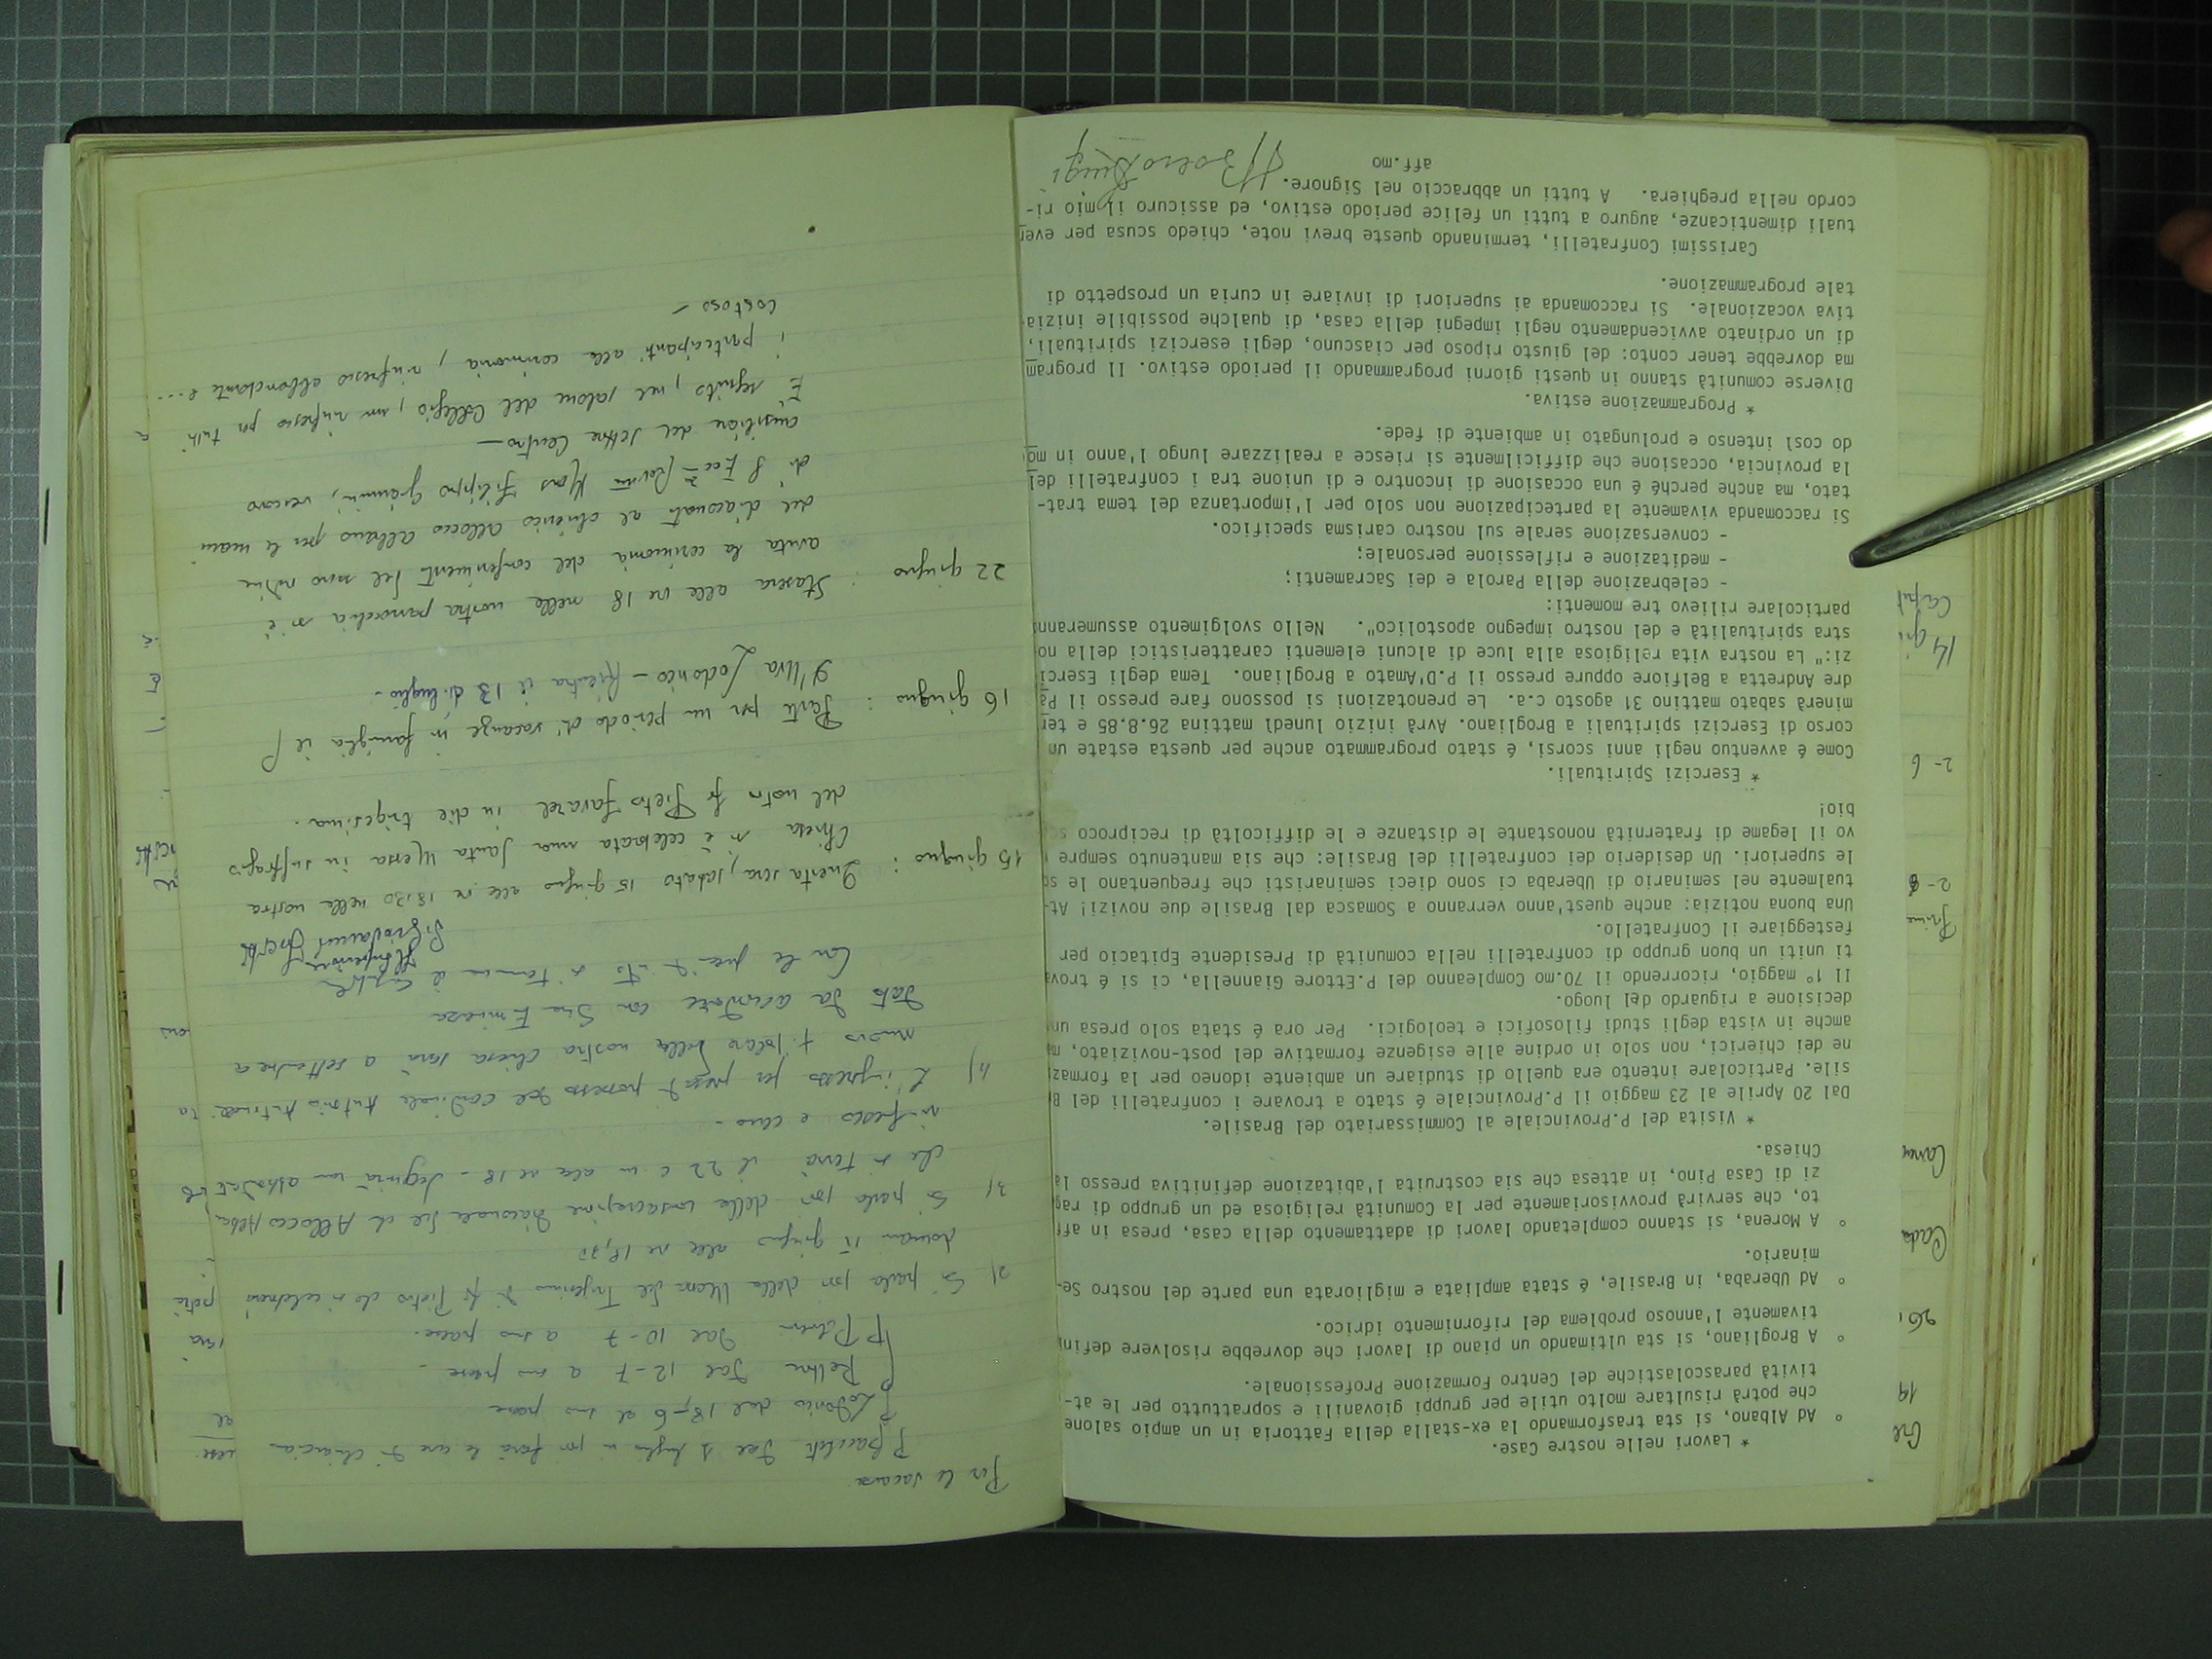 * Lavori nelle nostre Case.
° Ad Albano, si sta trasformando la ex-stalla della Fattoria in un ampio salone
che potrà risultare molto utile per gruppi giovanili e soprattutto per le at-
tività parascolastiche del Centro Formazione Professionale.
° A Brogliano, si sta ultimando un piano di lavori che dovrebbe risolvere defini
tivamente l'annoso problema del rifornimento idrico.
° Ad Uberaba, in Brasile, é stata ampliata e migliorata una parte del nostro Se-
minario.
° A Morena, si stanno completando lavori di adattamento della casa, presa in aff
to, che servirà provvisoriamente per la Comunità religiosa ed un gruppo di rag
zi di Casa Pino, in attesa che sia costruita l'abitazione definitiva presso la
Chiesa.
* Visita del P.Provinciale al Commissariato del Brasile.
Dal 20 Aprile al 23 maggio il P.Provinciale é stato a trovare i confratelli del B
sile. Particolare intento era quello di studiare un ambiente idoneo per la formaz
ne dei chierici, non solo in ordine alle esigenze formative del post-noviziato, m
anche in vista degli studi filosofici e teologici. Per ora é stata solo presa un
decisione a riguardo del luogo.
Il 1° maggio, ricorrendo il 70.mo Compleanno del P.Ettore Giannella, ci si é trova
ti uniti un buon gruppo di confratelli nella comunità di Presidente Epitacio per
festeggiare il Confratello.
Una buona notizia: anche quest'anno verranno a Somasca dal Brasile due novizi! At-
tualmente nel seminario di Uberaba ci sono dieci seminaristi che frequentano le sc
le superiori. Un desiderio dei confratelli del Brasile: che sia mantenuto sempre
vo il legame di fraternità nonostante le distanze e le difficoltà di reciproco sc
bio!
* Esercizi Spirituali.
Come é avventuo negli anni scorsi, é stato programmato anche per questa estate un
corso di Esercizi spirituali a Brogliano. Avrà inizio lunedì mattina 26.8.85 e ter
minerà sabato mattino 31 agosto c.a. Le prenotazioni si possono fare presso il Pa
dre Andretta a Belfiore oppure presso il P.D'Amato a Brogliano. Tema degli Eserci
zi:" La nostra vita religiosa alla luce di alcuni elementi caratteristici della no
stra spiritualità e del nostro impegno apostolico". Nello svolgimento assumerann
particolare rilievo tre momenti:
- celebrazione della Parola e dei Sacramenti;
- meditazione e riflessione personale;
- conversazione serale sul nostro carisma specifico.
Si raccomanda vivamente la partecipazione non solo per l'importanza del tema trat-
tato, ma anche perché é una occasione di incontro e di unione tra i confratelli del
la provincia, occasione che difficilmente si riesce a realizzare lungo l'anno in mo
do così intenso e prolungato in ambiente di fede.
* Programmazione estiva.
Diverse comunità stanno in questi giorni programmando il periodo estivo. Il program
ma dovrebbe tener conto: del giusto riposo per ciascuno, degli esercizi spirituali,
di un ordinato avvicendamento negli impegni della casa, di qualche possibile inizia
tiva vocazionale. Si raccomanda ai superiori di inviare in curia un prospetto di
tale programmazione.
Carissimi Confratelli, terminando queste brevi note, chiedo scusa per even
tuali dimenticanze, auguro a tutti un felice periodo estivo, ed assicuro il mio ri-
cordo nella preghiera. A tutti un abbraccio nel Signore.
aff.mo
P Boero Luigi
Per le vacanze
dal 1 luglio
P Lodovico dal 18-6 al suo paese
dal 12-7 a suo paese -
dal 10-7 a suo paese.
2) Si parla poi della Messa del Trigesimo di fr Pietro che si celebrerà
domani 15 giugno alle ore 18,30
3) Si parla poi della consacrazione diaconale del ch Allocco Albano,
che si terrà il 22 c.m alle ore 18 - Seguirà un
rinfresco e cena -
4) L'ingresso per presa di possesso del cardinale Antonio
nuovo titolare della nostra chiesa sarà a settembre a
data da accordare con Sua Eminenza
15 giugno : Questa sera, sabato 15 giugno alle ore 18.30 nella nostra
Chiesa si è celebrata una Santa Messa in suffragio
del nostro fr Pietro Favarel in die trigesima.
16 giugno : Parte per un periodo di vacanze in famiglia il P
D'Uva Lodovico - Rientra il 13 di luglio -
22 giugno : Stasera alle ore 18 nella nostra parrocchia si è
avuta la cerimonia del conferimento del sacro ordine
del diaconato al chierico Allocco Albano per le mani
di S Ecc=za Rev=ma Mons Filippo Giannini, vescovo
ausiliare del settore Centro -
È seguito, nel salone del Collegio, un rinfresco per tutti
i partecipanti alla cerimonia, rinfresco abbondante e...
costoso -